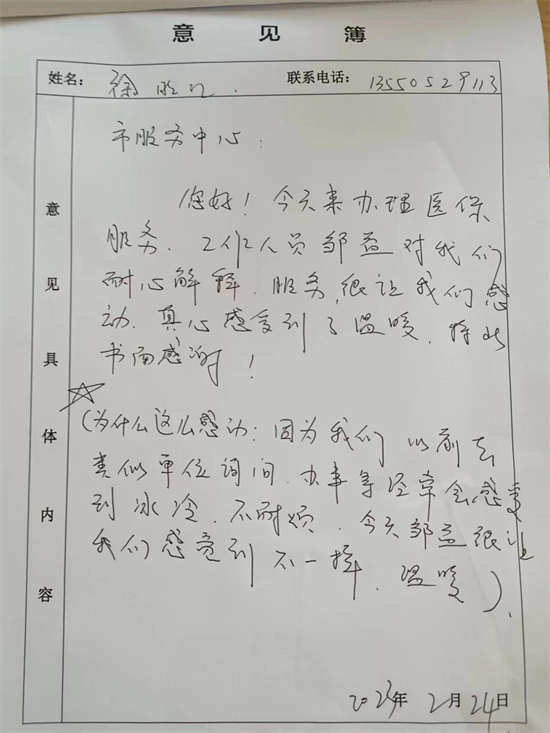 意见簿
姓名: 徐 联系电话: 13550529113
意见具体内容
市服务中心:
您好! 今天来办理医保
服务. 工作人员邹益对我们
耐心解释. 服务, 很让我们感
动. 真心感受到了温暖. 特此
书面感谢!
(为什么这么感动: 因为我们以前去
类似单位询问. 办事等经常会感受
到冰冷. 不耐烦. 今天邹益很让
我们感觉到不一样. 温暖).
2023年2月24日